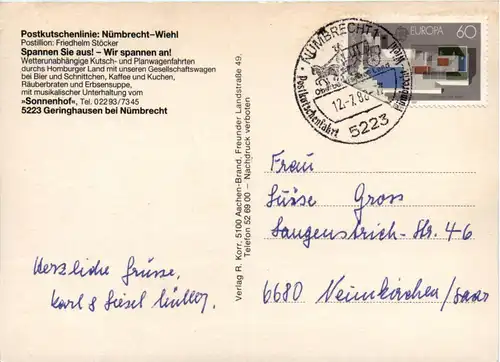 Postkutschenlinie: Nümbrecht–Wiehl
Postillion: Friedhelm Stöcker
Spannen Sie aus! – Wir spannen an!
Wetterunabhängige Kutsch- und Planwagenfahrten
durchs Homburger Land mit unseren Gesellschaftswagen
bei Bier und Schnittchen, Kaffee und Kuchen,
Räuberbraten und Erbsensuppe,
mit musikalischer Unterhaltung vom
»Sonnenhof«, Tel. 02293/7345
5223 Geringhausen bei Nümbrecht
Verlag R. Korr, 5100 Aachen-Brand, Freunder Landstraße 49,
Telefon 52 69 00 – Nachdruck verboten
NÜMBRECHT 1
Postkutschenfahrt
Nümbrecht Wiehl
12.-7.88
5223
EUROPA 60
Frau
Gross
Langenstrich-Str. 46
6680 Neunkirchen/Saar
Herzliche Grüsse,
Karl & Liesel Müller.